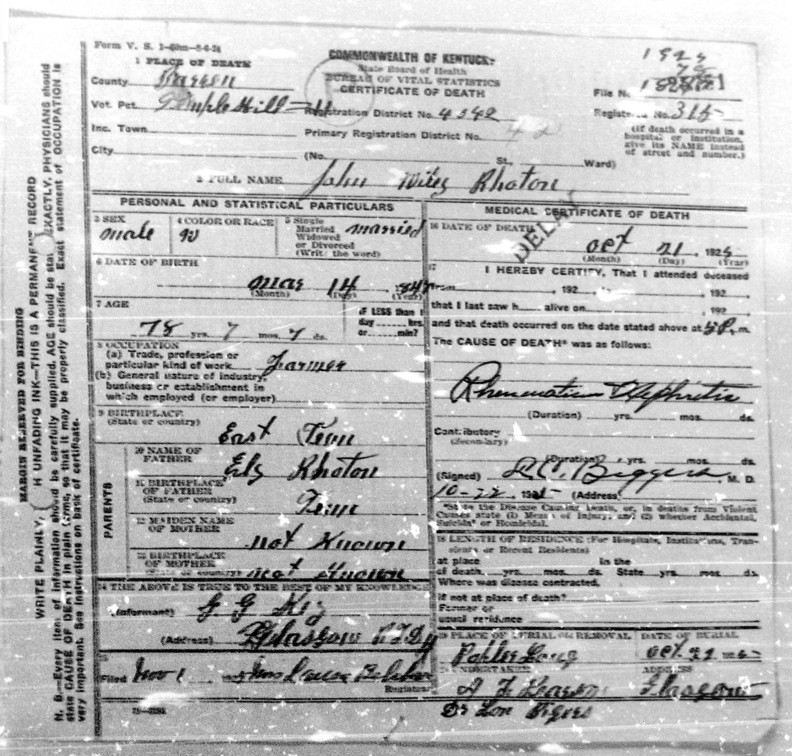 Form V. S. 1-50m-8-6-24
COMMONWEALTH OF KENTUCKY
State Board of Health
BUREAU OF VITAL STATISTICS
CERTIFICATE OF DEATH
1 PLACE OF DEATH
County Barren
Vot. Pct. Temple Hill
Inc. Town
City
Registration District No. 4342
Primary Registration District No. 42
(No. St., Ward)
1925
File No.
Registered No. 315
(If death occurred in a hospital or institution, give its NAME instead of street and number.)
2 FULL NAME John Wiley Rhoton
PERSONAL AND STATISTICAL PARTICULARS
3 SEX
male
4 COLOR OR RACE
W
5 Single
Married
Widowed
or Divorced
(Write the word)
married
6 DATE OF BIRTH
Mar 14 1847
(Month) (Day) (Year)
7 AGE
78 yrs. 7 mos. 7 ds.
IF LESS than 1
day hrs.
or min?
8 OCCUPATION
(a) Trade, profession or
particular kind of work Farmer
(b) General nature of industry,
business or establishment in
which employed (or employer)
9 BIRTHPLACE
(State or country)
East Tenn
PARENTS
10 NAME OF
FATHER
Ely Rhoton
11 BIRTHPLACE
OF FATHER
(State or country)
Tenn
12 MAIDEN NAME
OF MOTHER
not Known
13 BIRTHPLACE
OF MOTHER
(State or country) not Known
14 THE ABOVE IS TRUE TO THE BEST OF MY KNOWLEDGE
(Informant) G G Key
(Address) Glasgow
15
Filed Nov 1
Registrar
MEDICAL CERTIFICATE OF DEATH
16 DATE OF DEATH
DELAY
Oct 21, 1925
(Month) (Day) (Year)
17
I HEREBY CERTIFY, That I attended deceased
from , 192 , 192
that I last saw h alive on , 192
and that death occurred on the date stated above at m.
The CAUSE OF DEATH* was as follows:
Rheumatism Nephritis
(Duration) yrs. mos. ds.
Contributory
(Secondary)
(Duration) yrs. mos. ds.
(Signed) Biggers, M. D.
10-22, 1925 (Address)
*State the Disease Causing Death, or, in deaths from Violent
Causes state (1) Means of Injury; and (2) whether Accidental,
Suicidal or Homicidal.
18 LENGTH OF RESIDENCE (For Hospitals, Institutions, Tran-
sients or Recent Residents)
at place In the
of death yrs. mos. ds. State yrs. mos. ds.
Where was disease contracted,
if not at place of death?
Former or
usual residence
19 PLACE OF BURIAL OR REMOVAL
Poplar Log
DATE OF BURIAL
Oct. 22 1925
20 UNDERTAKER
ADDRESS
Glasgow
MARGIN RESERVED FOR BINDING
WRITE PLAINLY, H UNFADING INK—THIS IS A PERMANENT RECORD
N. B.—Every item of information should be carefully supplied. AGE should be stated EXACTLY. PHYSICIANS should
state CAUSE OF DEATH in plain terms, so that it may be properly classified. Exact statement of OCCUPATION is
very important. See instructions on back of certificate.